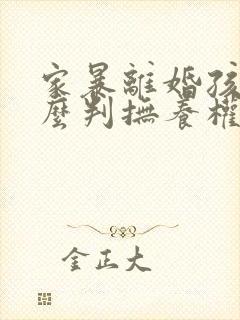 家暴離婚孩
麼判撫養權
金正大